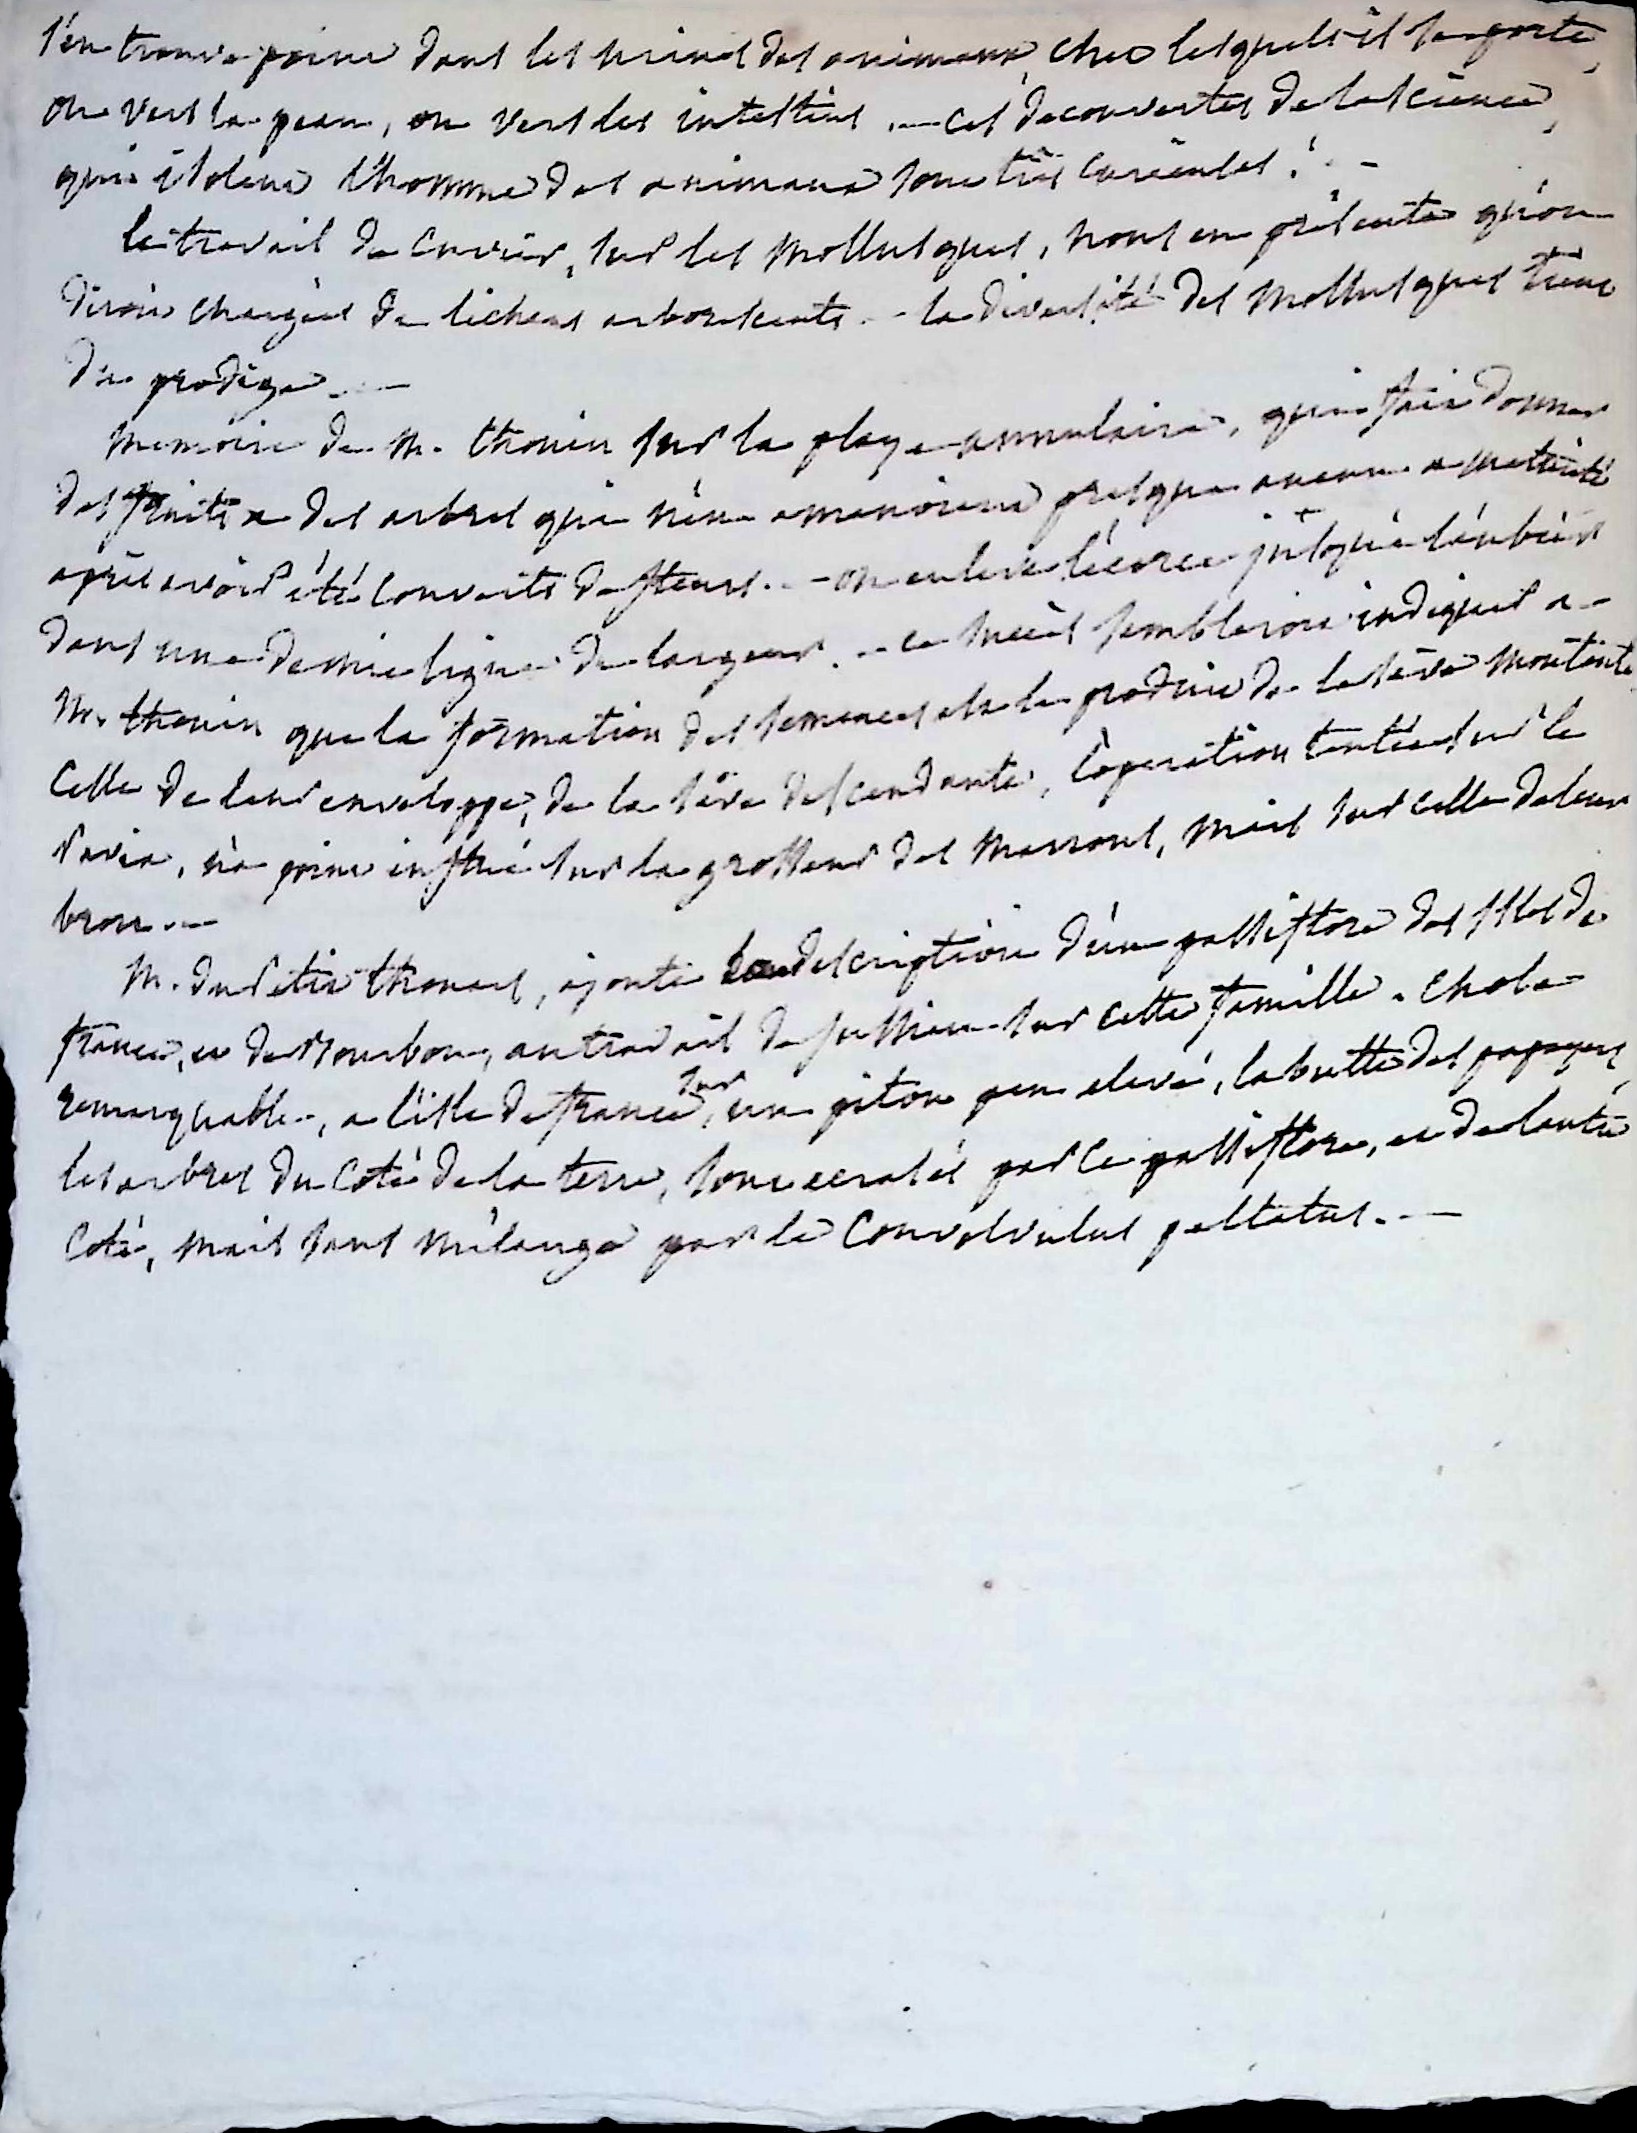 s'en trouve point dans les urines des animaux, chez lesquels il se porte,
ou vers la peau, ou vers les intestins. — ces decouvertes de la science,
qui isolent l'homme des animaux sont très curieuses! —
le travail de Cuvier, sur les Mollusques, nous en présente qu'on
diroit chargés de lichens arborescents. — la diversité des Mollusques tient
du prodige. —
Memoire de M. thouin sur la playe annulaire, qui fait donner
des fruits a des arbres qui n'en amenoient presque aucun a maturité
après avoir été couverts de fleurs. — on enleve l'écorce jusqu'à l'aubier
dans une demie ligne de largeur. — ce succès sembleroit indiquer a
M. thouin que la formation des semences est le produit de la sève montante
celle de leur enveloppe, de la sève descendante, l'operation tentée sur le
Pavia, n'a point influé sur la grosseur des marrons, mais sur celle de leur
brou. —
M. du Petit thouars, ajoute la description d'une passiflore des isles de
france, et de Bourbon, au travail de Jussieu sur cette famille. chose
remarquable, a l'isle de france, sur un piton peu elevé, la butte des papayes,
les arbres du coté de la terre, sont ecrasés par ce passiflore, et de l'autre
coté, mais sans mélange par le Convolvulus peltatus. —